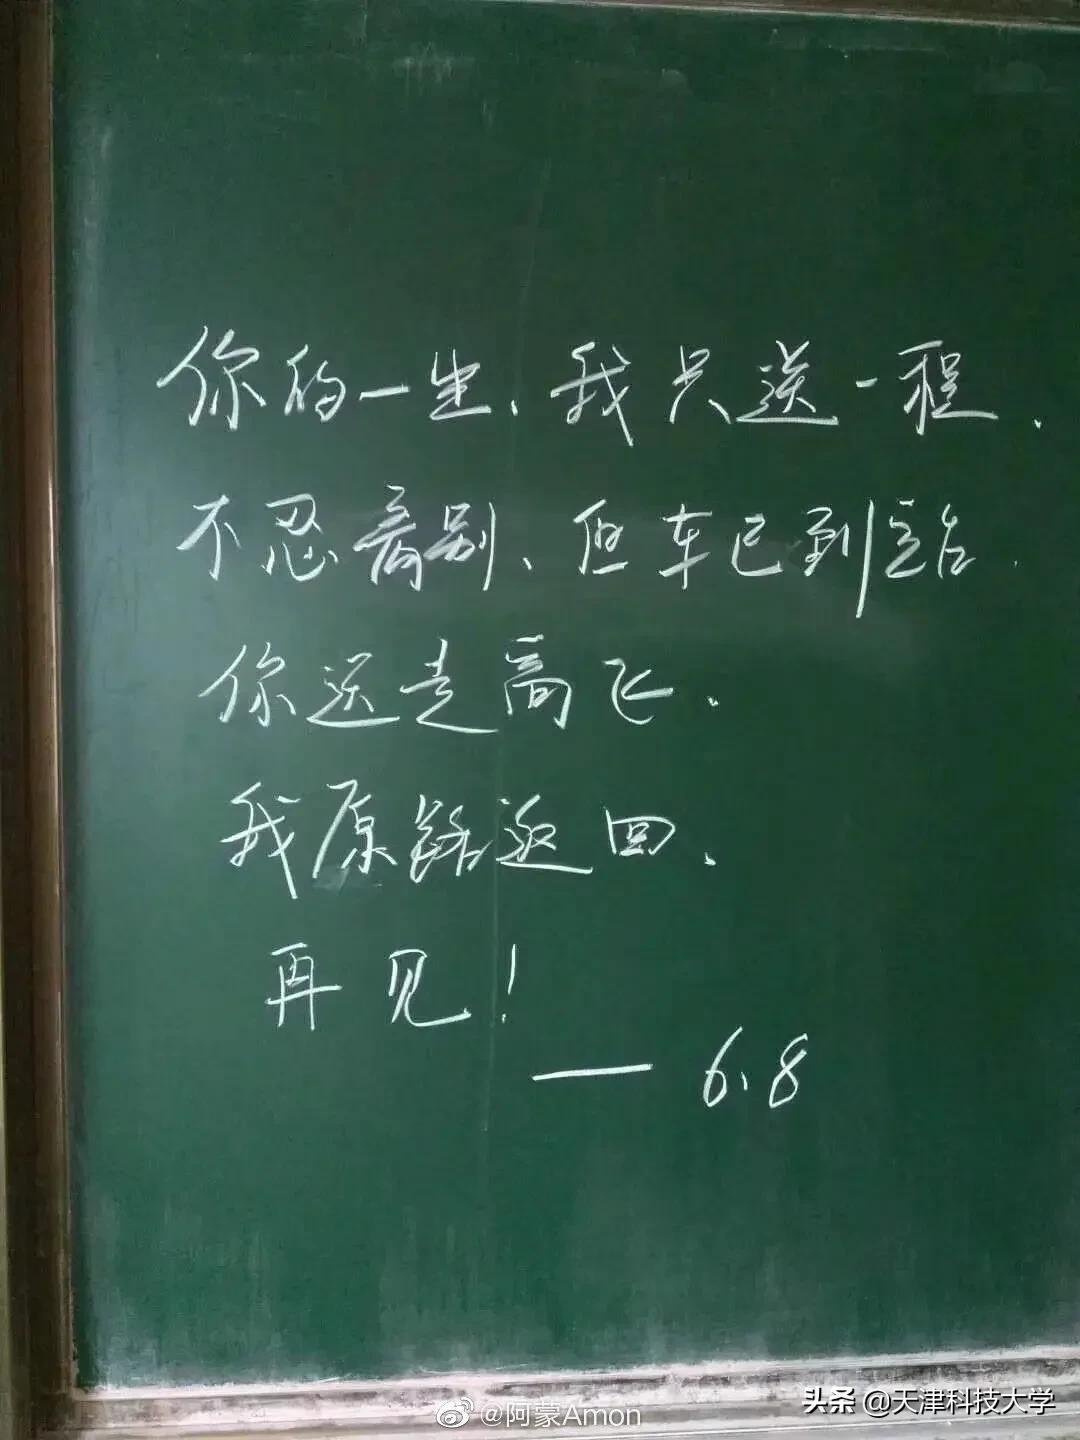 你的一生、我只送一程、
不忍离别、但车已到站.
你远走高飞.
我原路返回、
再见！
— 6.8
头条 @天津科技大学
@阿蒙Amon